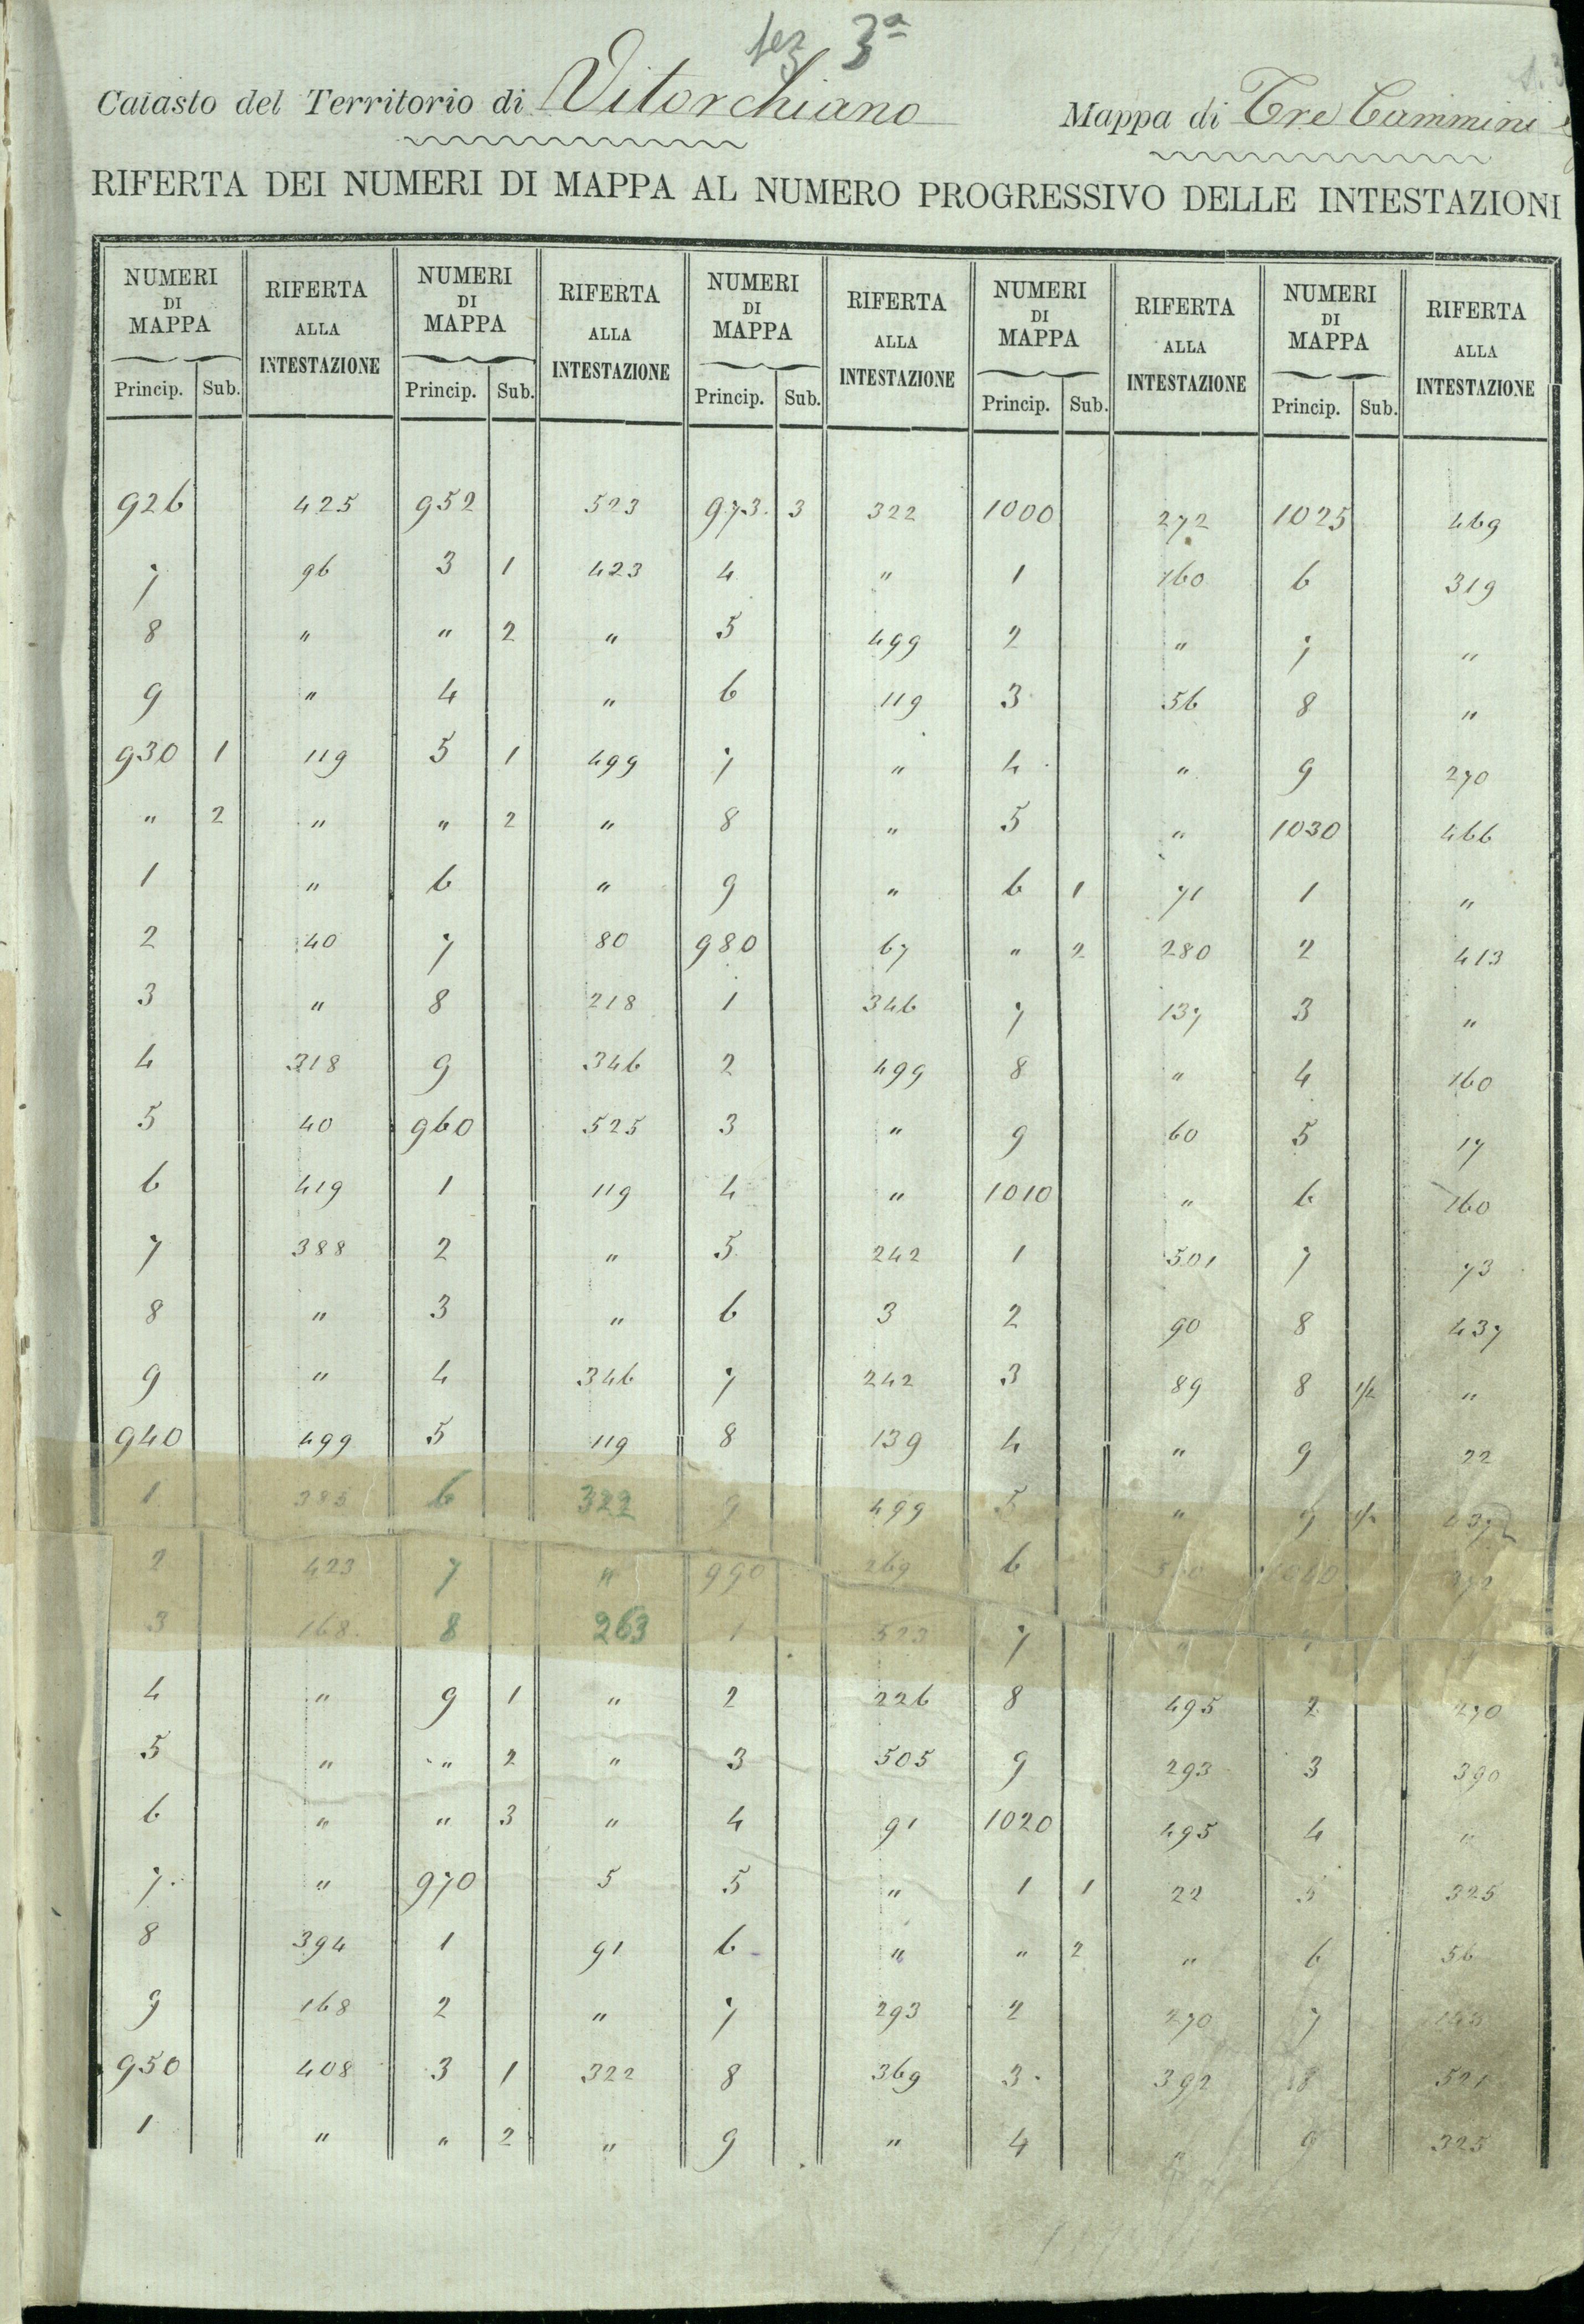 sez 3ª
Catasto del Territorio di Vitorchiano Mappa di Tre Cammini
RIFERTA DEI NUMERI DI MAPPA AL NUMERO PROGRESSIVO DELLE INTESTAZIONI
NUMERI DI MAPPA RIFERTA ALLA INTESTAZIONE NUMERI DI MAPPA RIFERTA ALLA INTESTAZIONE NUMERI DI MAPPA RIFERTA ALLA INTESTAZIONE NUMERI DI MAPPA RIFERTA ALLA INTESTAZIONE NUMERI DI MAPPA RIFERTA ALLA INTESTAZIONE
Princip. Sub. Princip. Sub. Princip. Sub. Princip. Sub. Princip. Sub.
926 425 952 523 973 3 322 1000 272 1025 469
7 96 3 1 423 4 " 1 160 6 319
8 " " 2 " 5 499 2 " 7 "
9 " 4 " 6 119 3 56 8 "
930 1 119 5 1 499 7 " 4 " 9 270
" 2 " " 2 " 8 " 5 " 1030 466
1 " 6 " 9 " 6 1 71 1 "
2 40 7 80 980 67 " 2 280 2 413
3 " 8 218 1 346 7 137 3 "
4 318 9 346 2 499 8 " 4 160
5 40 960 525 3 " 9 60 5 17
6 419 1 119 4 " 1010 " 6 160
7 388 2 " 5 242 1 501 7 73
8 " 3 " 6 3 2 90 8 437
9 " 4 346 7 242 3 89 8 1/2 "
940 499 5 119 8 139 4 " 9 22
1 385 6 322 9 499 5 " 9 1/2
2 423 7 " 990 269 6 1040
3 168 8 263 1 523 7 "
4 " 9 1 " 2 226 8 495 2 270
5 " " 2 " 3 505 9 293 3 390
6 " " 3 " 4 91 1020 495 4 "
7 " 970 5 5 " 1 1 22 5 325
8 394 1 91 6 " " 2 " 6 56
9 168 2 " 7 293 2 270 7
950 408 3 1 322 8 369 3 392 8 521
1 " " 2 " 9 " 4 " 9 325